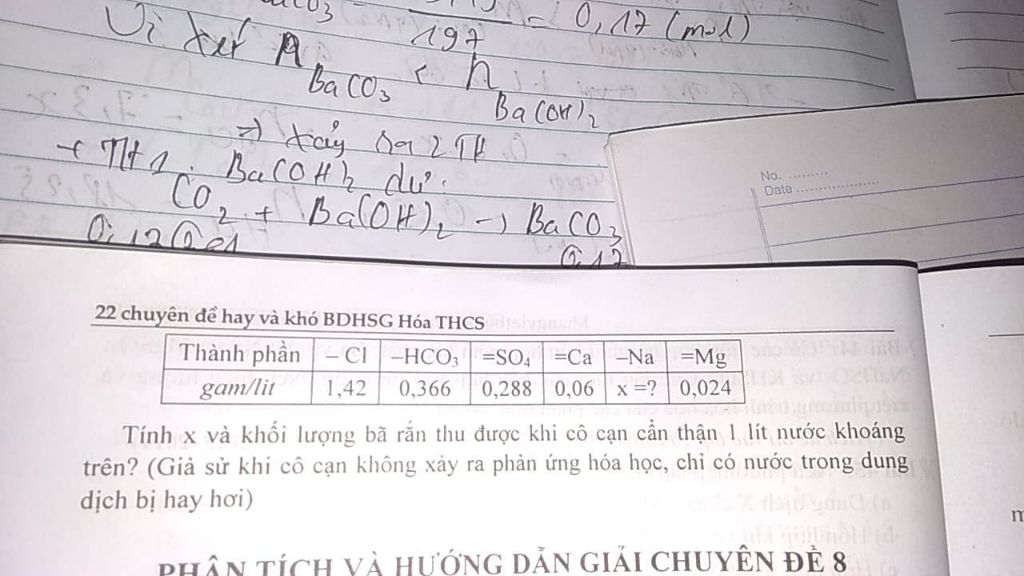 = 0,17 (mol)
197
Vì xét n BaCO3 < n Ba(OH)2
=) xảy ra 2 TH
+ TH1: Ba(OH)2 dư.
CO2 + Ba(OH)2 -> BaCO3
0,17
No. ..........
Date ....................
22 chuyên đề hay và khó BDHSG Hóa THCS
Thành phần – Cl –HCO3 =SO4 =Ca –Na =Mg
gam/lit 1,42 0,366 0,288 0,06 x =? 0,024
Tính x và khối lượng bã rắn thu được khi cô cạn cẩn thận 1 lít nước khoáng
trên? (Giả sử khi cô cạn không xảy ra phản ứng hóa học, chỉ có nước trong dung
dịch bị hay hơi)
PHÂN TÍCH VÀ HƯỚNG DẪN GIẢI CHUYÊN ĐỀ 8